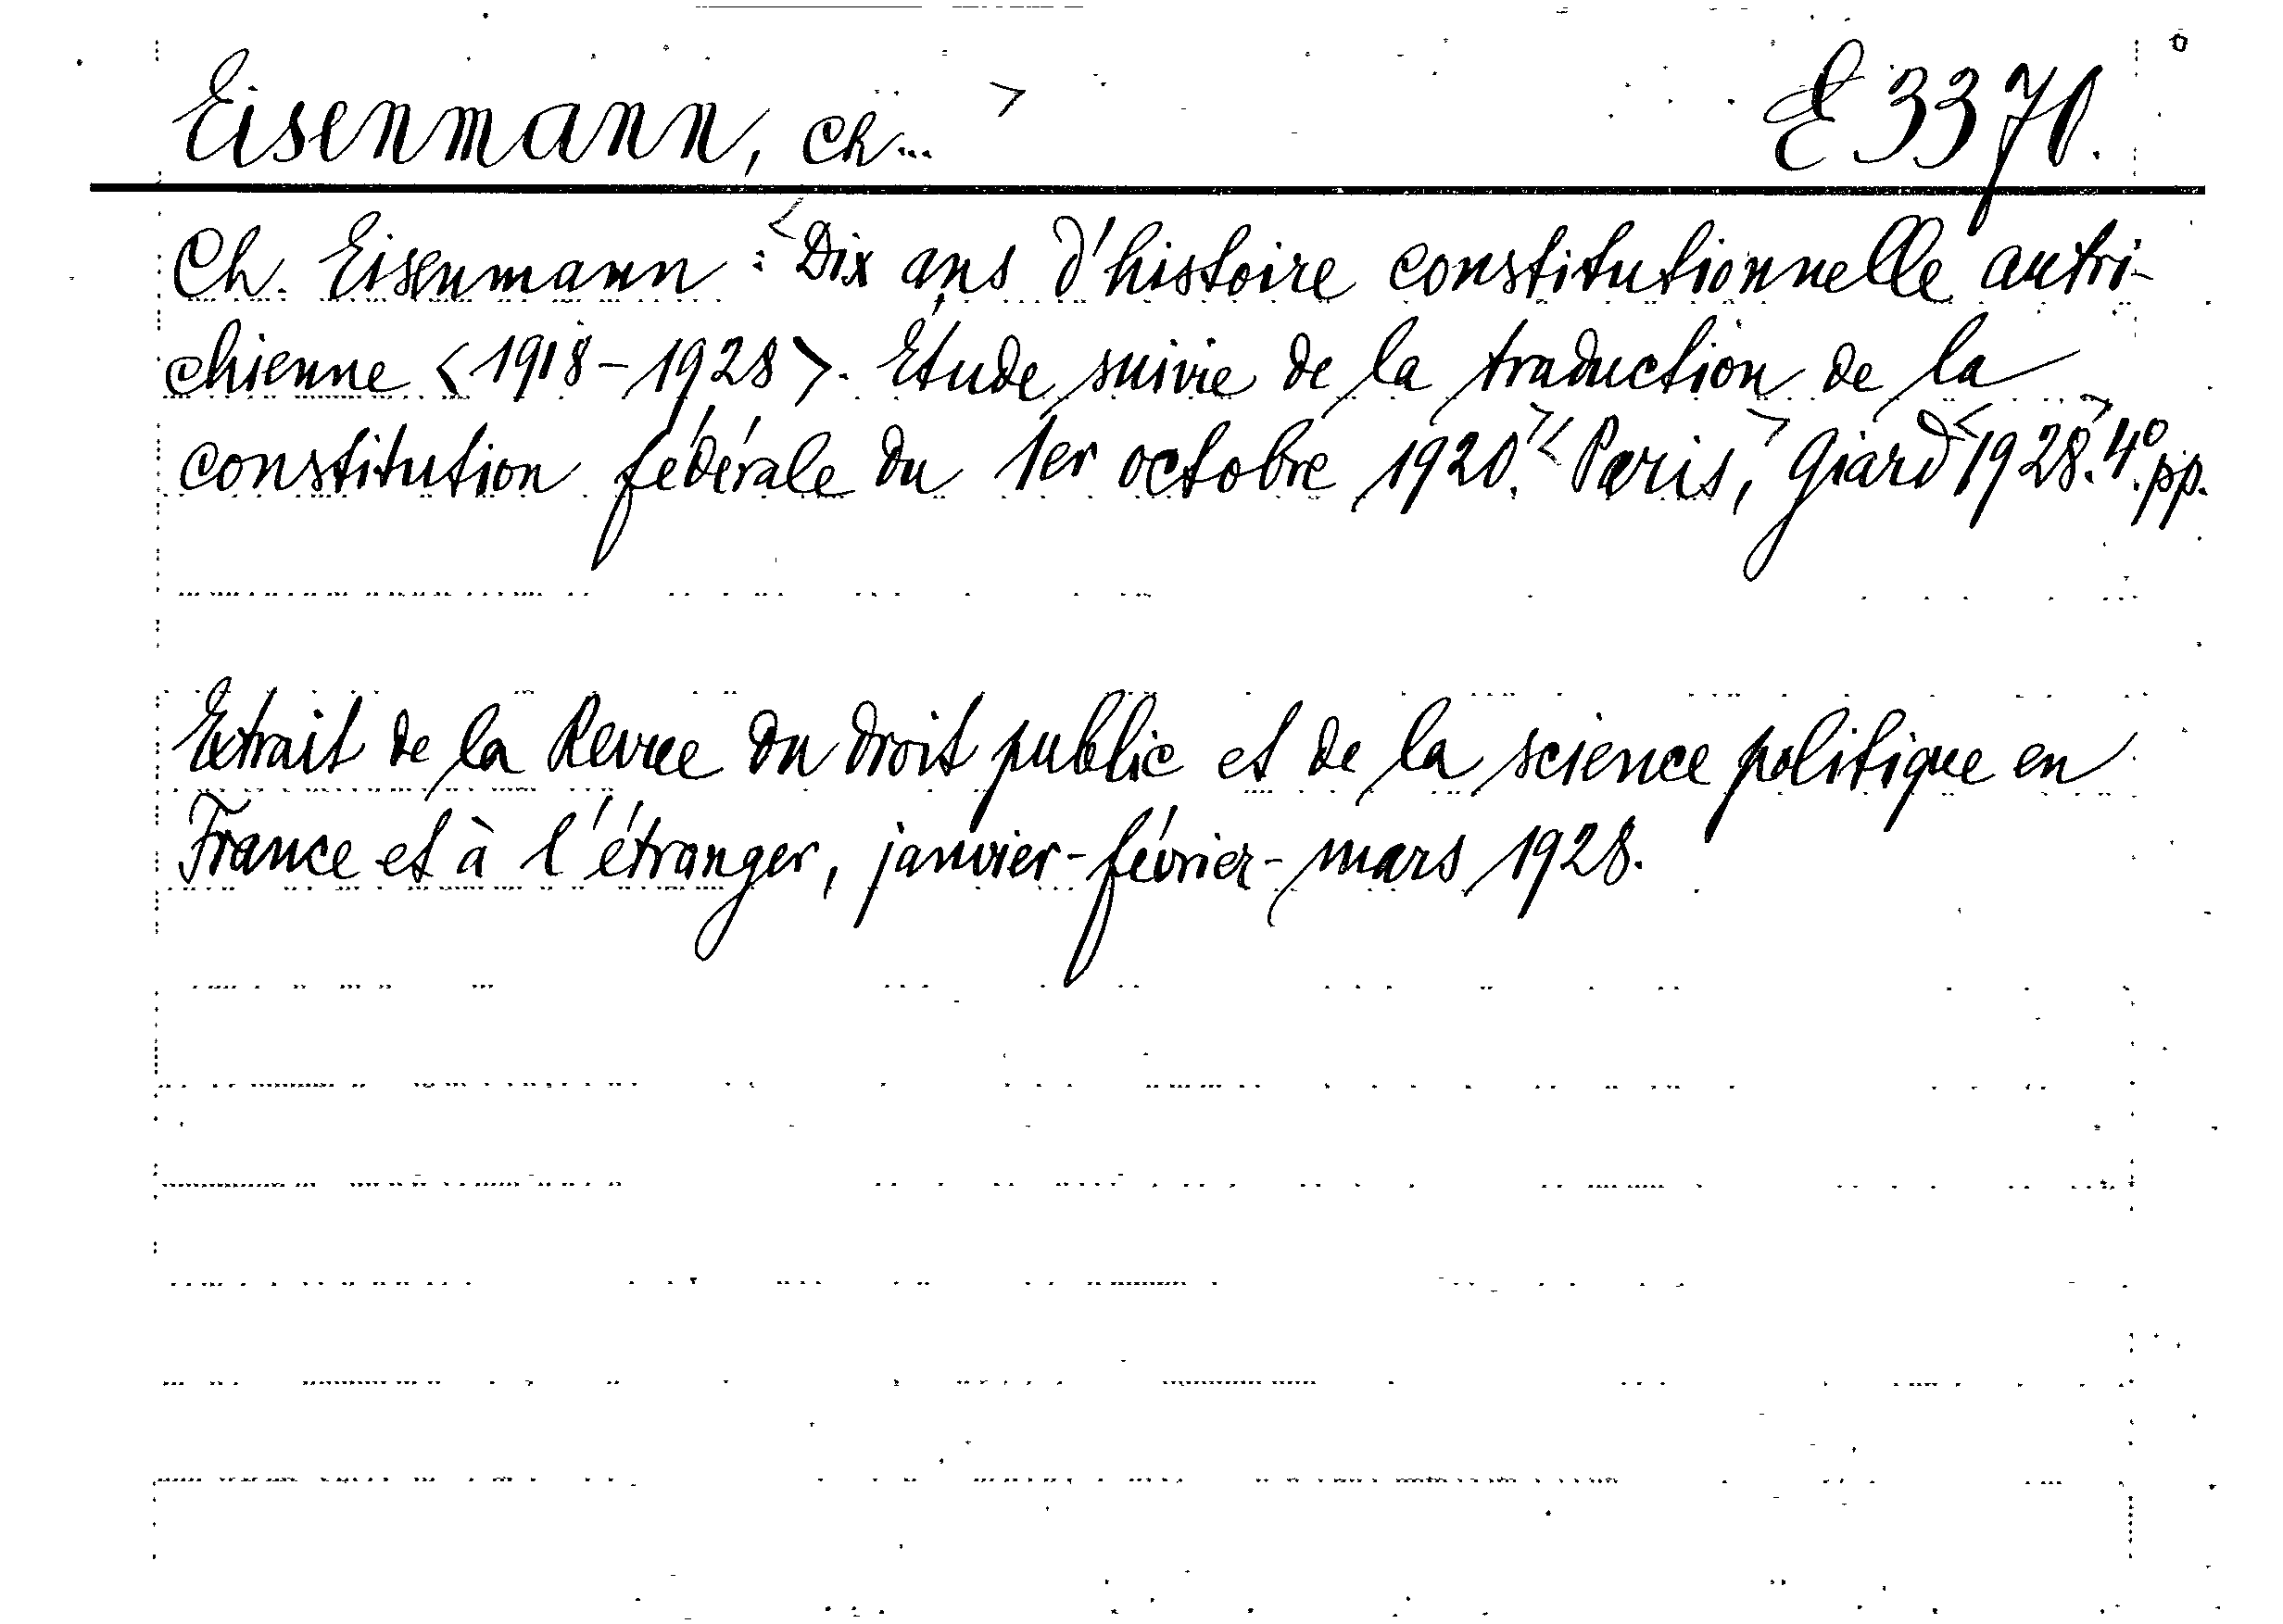 Eisenmann, Ch... > E 3370.
Ch. Eisenmann : <Dix ans d'histoire constitutionnelle autri-
chienne <1918-1928>. Etude suivie de la traduction de la
constitution fédérale du 1er octobre 1920.> <Paris,> Giard <1928.> 4° pp.
Extrait de la Revue du droit public et de la science politique en
France et à l'étranger, janvier-février-mars 1928.